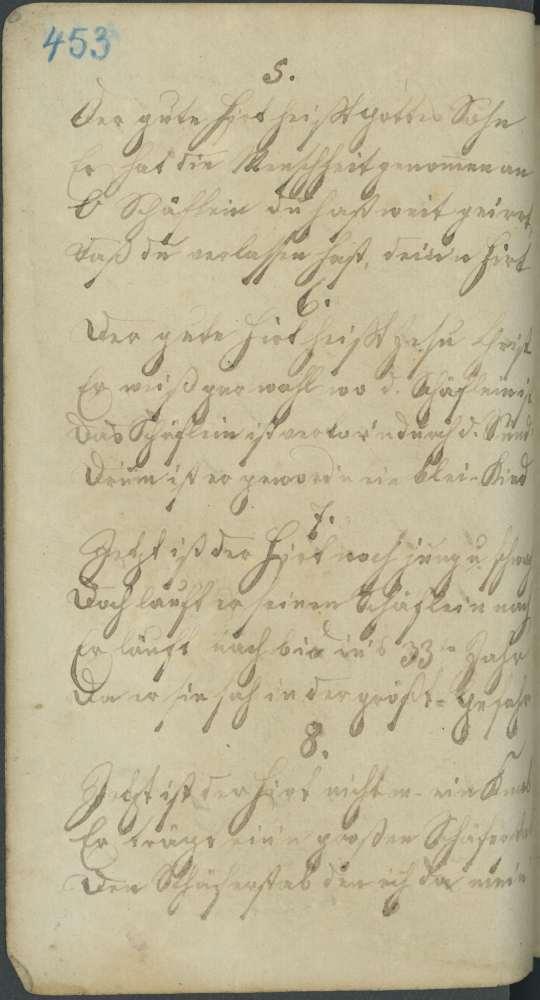 453
5.
Der gute Hirt heißt Gottes Sohn
Er hat die Menschheit genommen an
O Schäflein du hast weit geirrt,
Daß du verlassen hast, deinen Hirt
6.
Der gute Hirt heißt Jesu Christ
Er weiß gar wohl wo d. Schäflein
Das Schäflein ist verlor'n durch d. Sünd
Drum ist er geword'n ein klei- Kind
7.
Jetzt ist der Hirt noch jung u. schwach
Doch lauft er seinen Schäflein nach
Er läuft nach bis in's 33te Jahr
Da er sie sah in der größt- Gefahr
8.
Jetzt ist der Hirt nicht m- ein
Er trägt ein'n großen
Den Schäferstab den ich da mein